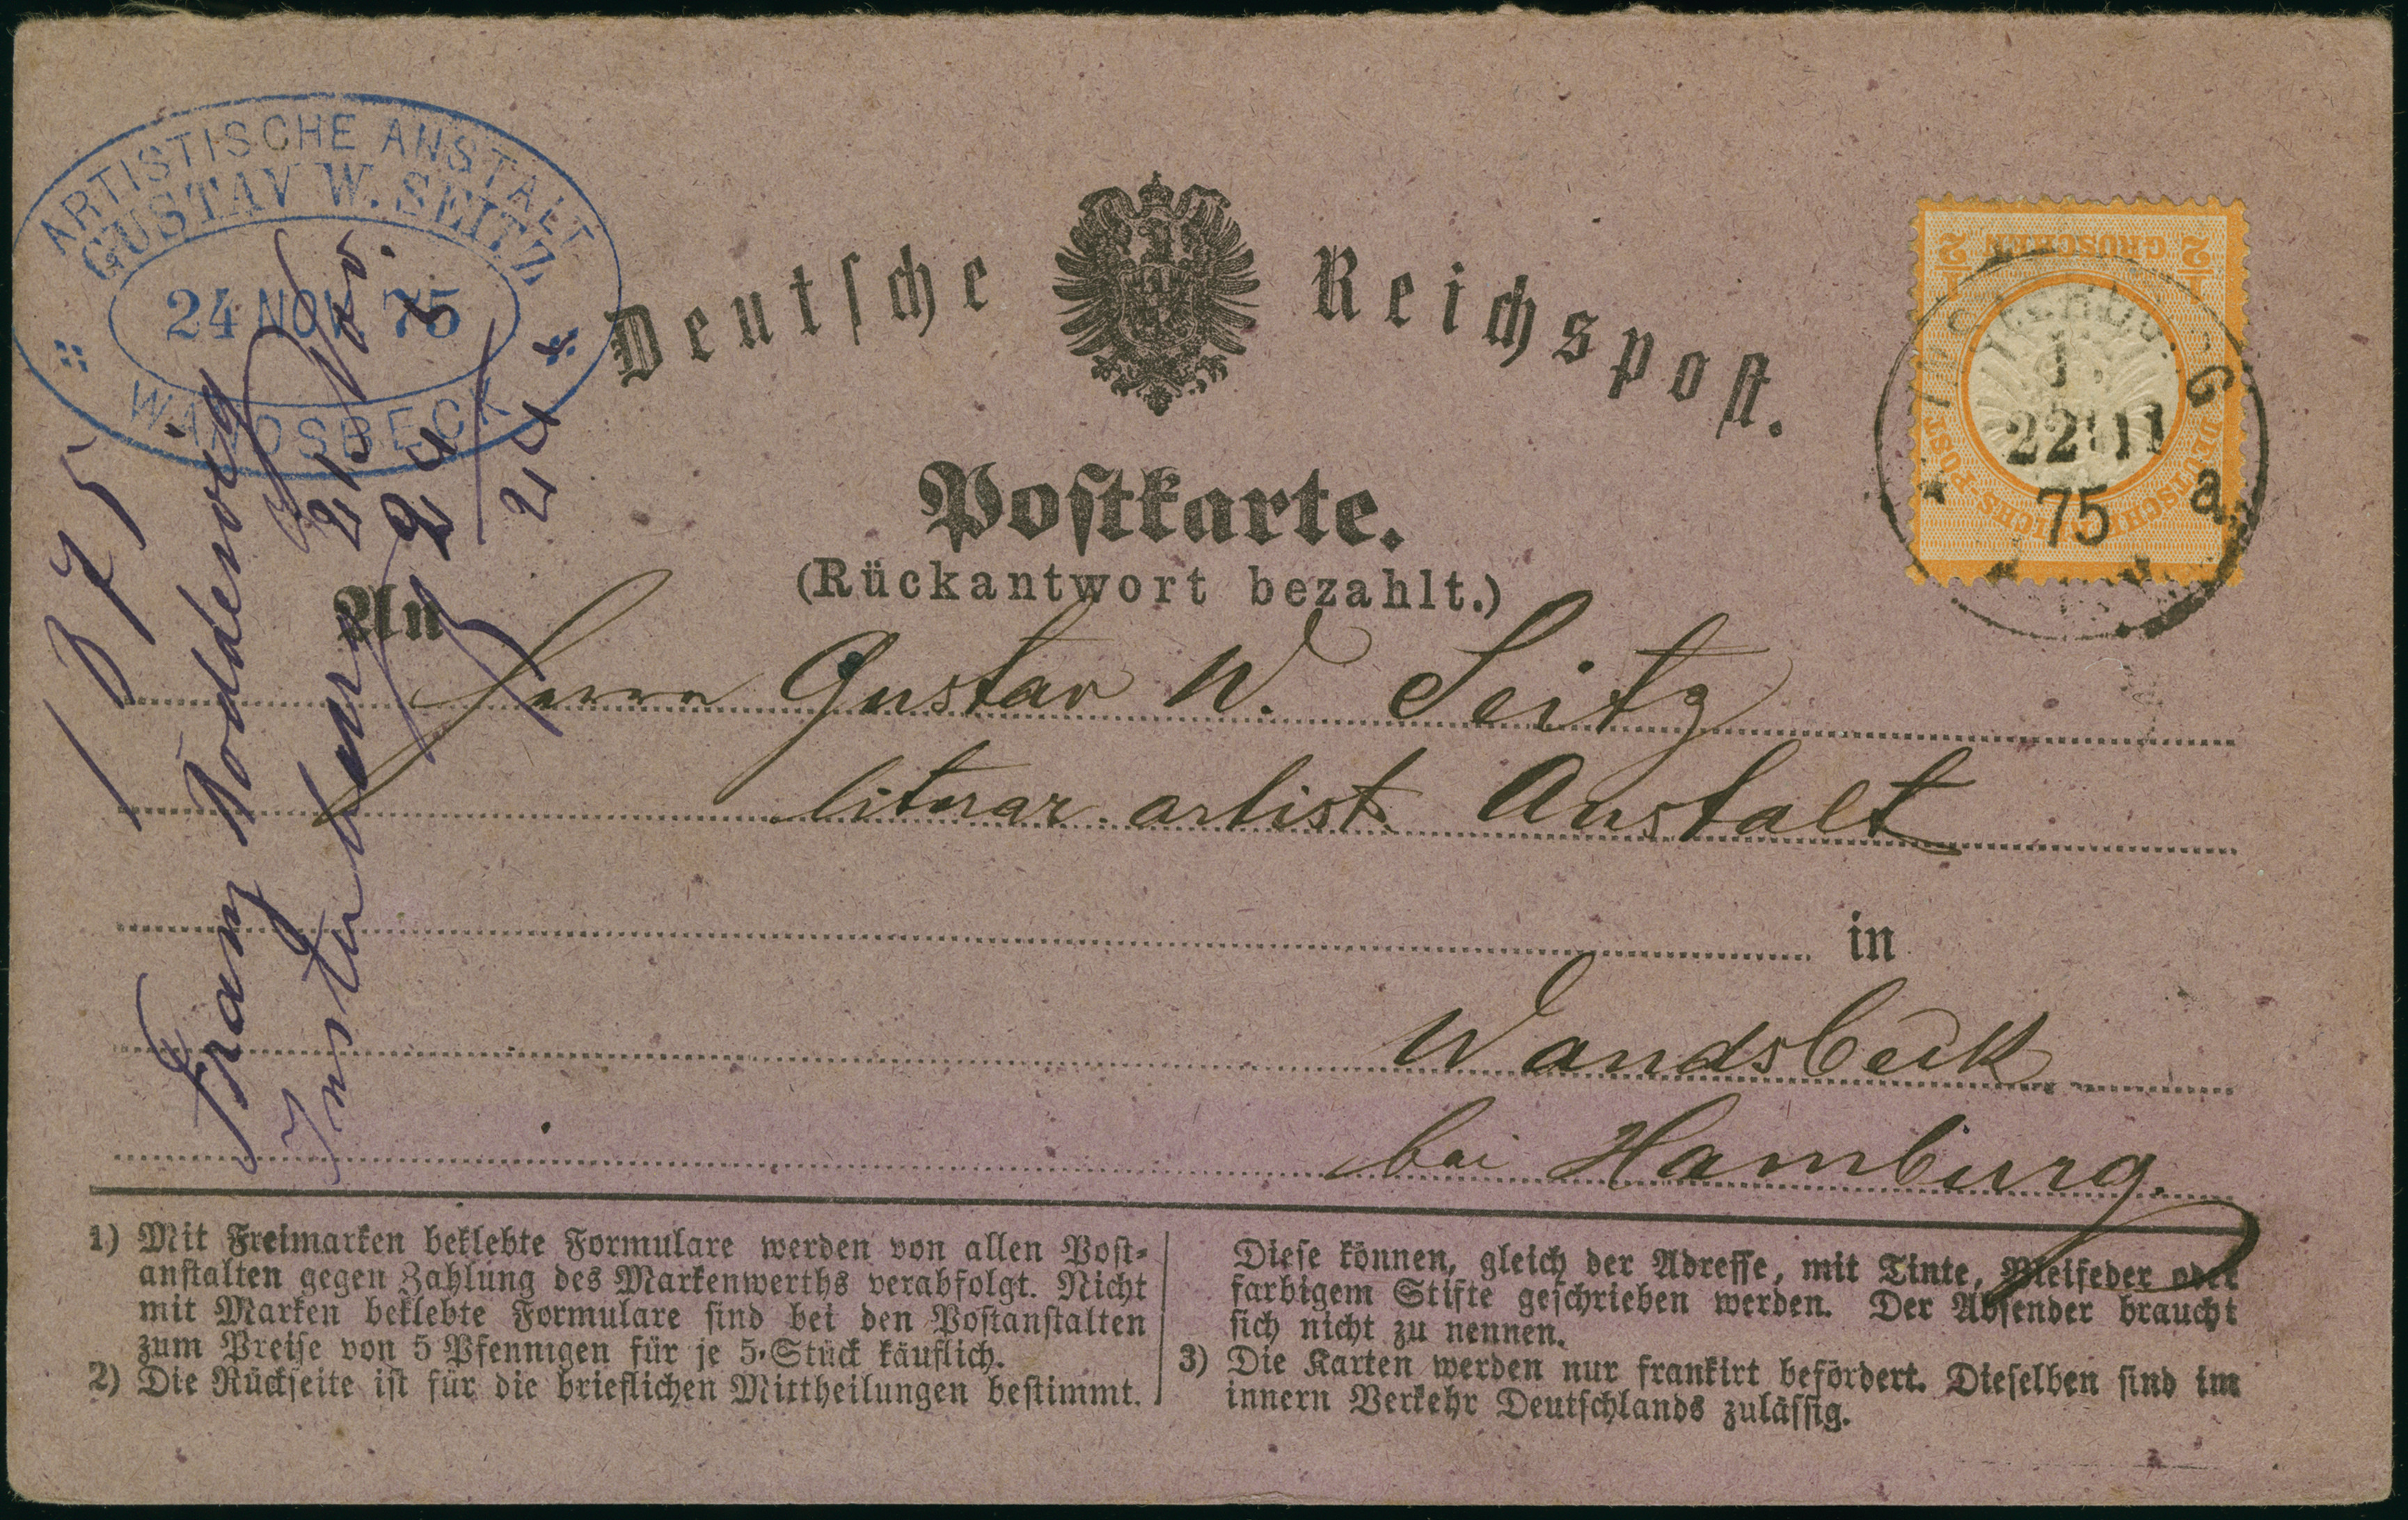 ARTISTISCHE ANSTALT
GUSTAV W. SEITZ
24 NOV. 75
WANDSBECK
Deutsche Reichspost.
Postkarte.
(Rückantwort bezahlt.)
½ GROSCHEN ½
DEUTSCHE REICHS-POST
INSTERBURG
1.
22 11
75 a.
1375
Franz
Insterburg
21 Nov.
24
24
An
Herrn Gustav W. Seitz
literar. artist. Anstalt
in
Wandsbeck
bei Hamburg.
1) Mit Freimarken beklebte Formulare werden von allen Post-
anstalten gegen Zahlung des Markenwerths verabfolgt. Nicht
mit Marken beklebte Formulare sind bei den Postanstalten
zum Preise von 5 Pfennigen für je 5 Stück käuflich.
2) Die Rückseite ist für die brieflichen Mittheilungen bestimmt.
Diese können, gleich der Adresse, mit Tinte, Bleifeder oder
farbigem Stifte geschrieben werden. Der Absender braucht
sich nicht zu nennen.
3) Die Karten werden nur frankirt befördert. Dieselben sind im
innern Verkehr Deutschlands zulässig.